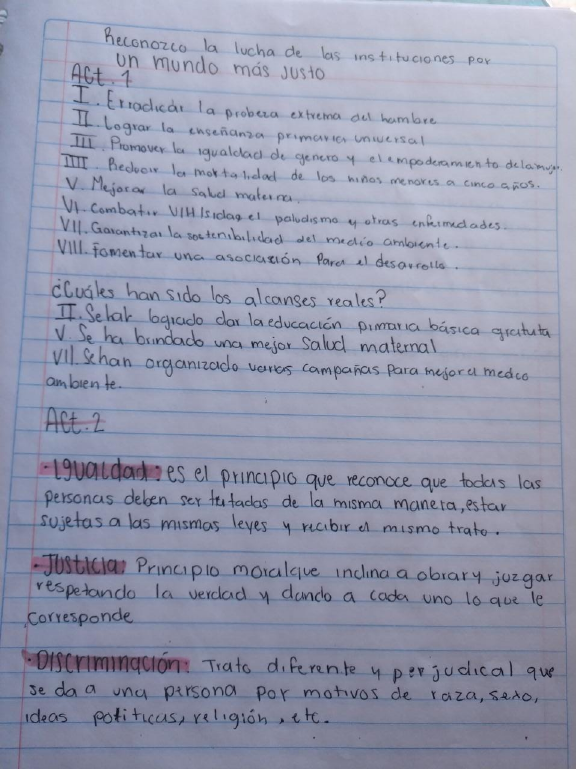 Reconozco la lucha de las instituciones por
un mundo más justo
Act. 1
I. Erradicar la probeza extrema del hambre
II. Lograr la enseñanza primaria universal
III. Promover la igualdad de genero y el empoderamiento de la mujer.
IIII. Reducir la mortalidad de los niños menores a cinco años.
V. Mejorar la salud materna.
VI. Combatir VIH/sidas el paludismo y otras enfermedades.
VII. Garantizar la sostenibilidad del medio ambiente.
VIII. Fomentar una asociación Para el desarrollo.
¿Cuáles han sido los alcanses reales?
II. Se hak logrado dar la educación primaria básica gratuta
V. Se ha brindado una mejor salud maternal
VII. Se han organizado varias campañas para mejorar el medco
ambiente.
Act. 2
·Igualdad: es el principio que reconoce que todas las
personas deben ser tratadas de la misma manera, estar
sujetas a las mismas leyes y recibir el mismo trato.
·Justicia: Principio moral que inclina a obrar y juzgar
respetando la verdad y dando a cada uno lo que le
corresponde
·Discriminación: Trato diferente y perjudical que
se da a una persona por motivos de raza, sexo,
ideas politicas, religión, etc.